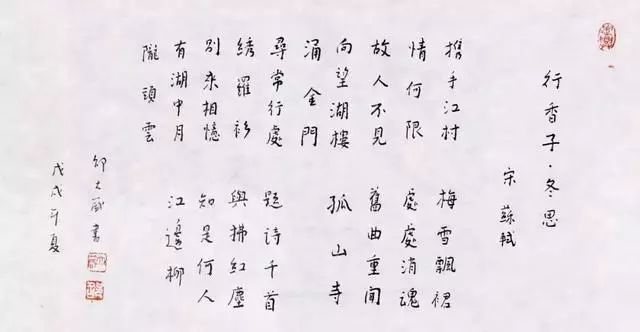 行香子·冬思
宋 蘇軾
携手江村 梅雪飄裙
情何限 處處消魂
故人不見 舊曲重聞
向望湖樓 孤山寺
涌金門
尋常行處 題詩千首
綉羅衫 與拂紅塵
別來相憶 知是何人
有湖中月 江邊柳
隴頭雲
邵大箴書
戊戌年夏